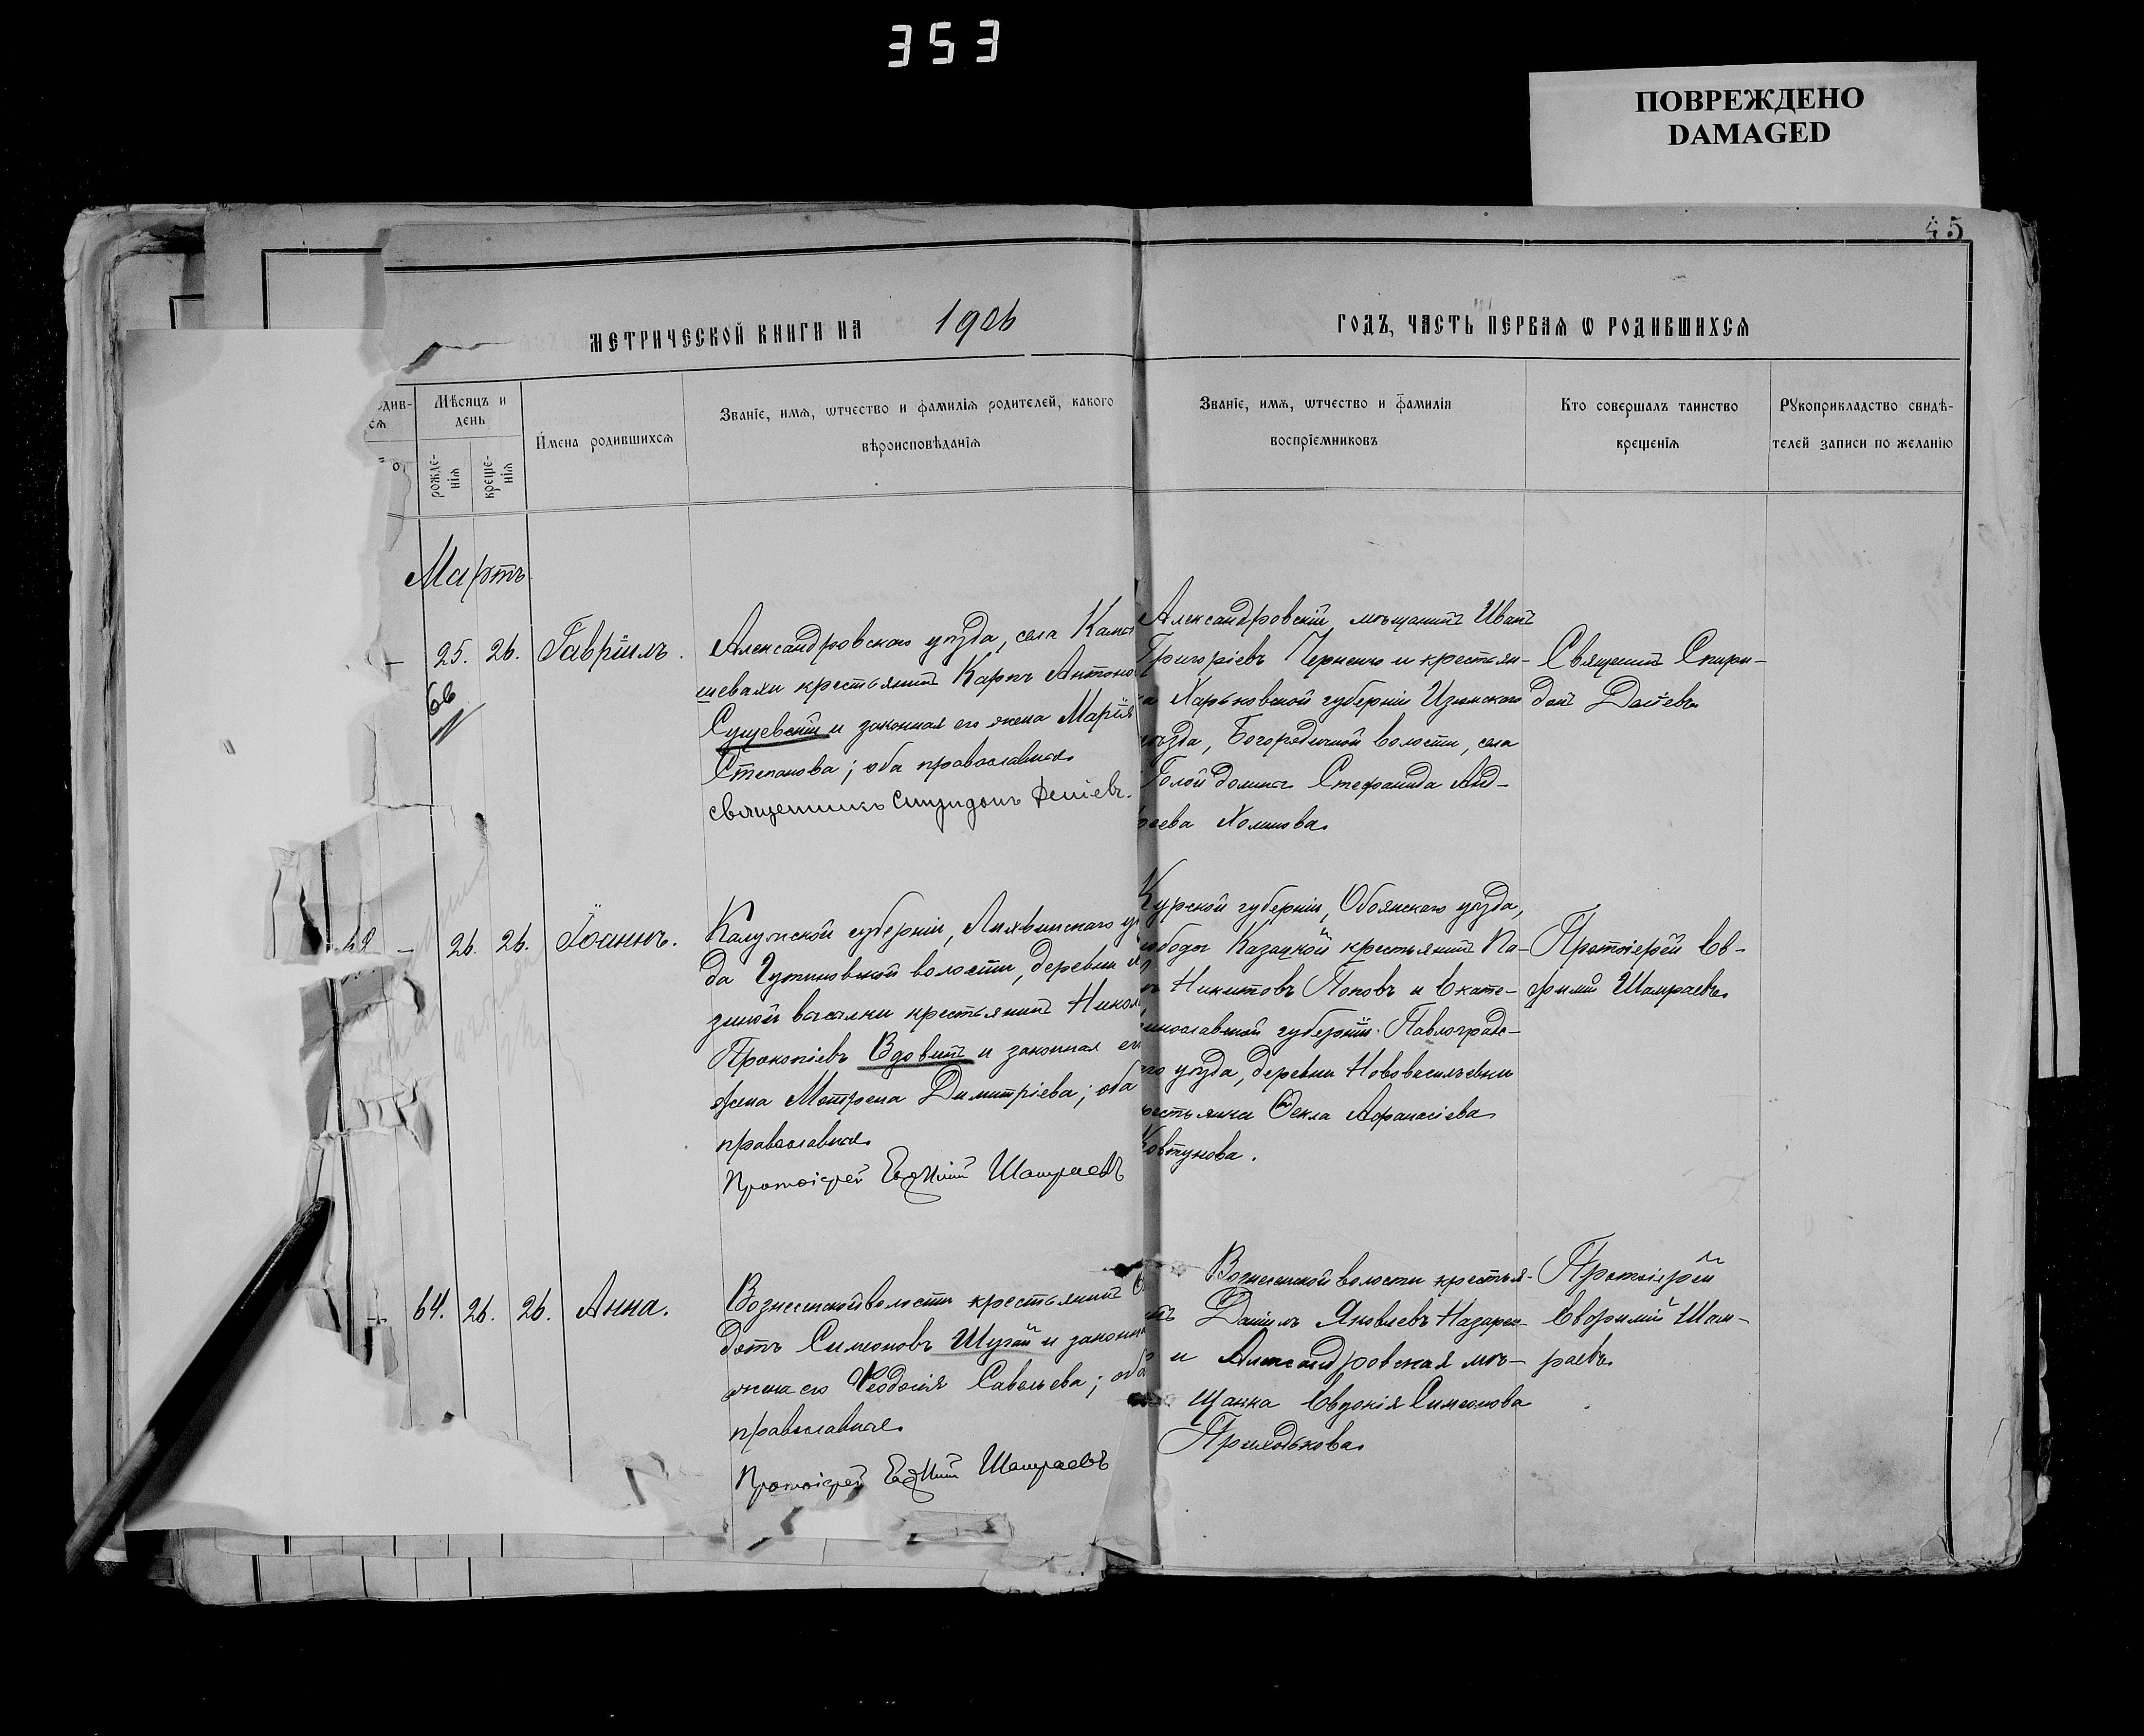 353
ПОВРЕЖДЕНО
DAMAGED
45
МЕТРИЧЕСКОЙ КНИГИ НА 1906
ГОДЪ, ЧАСТЬ ПЕРВАЯ Ѡ РОДИВШИХСЯ
Мѣсяцъ и день
рожде-
нія
креще-
нія
Имена родившихся
Званіе, имя, ѡтчество и фамилія родителей, какого
вѣроисповѣданія
Званіе, имя, ѡтчество и фамилія
воспріемниковъ
Кто совершалъ таинство
крещенія
Рукоприкладство свидѣ-
телей записи по желанію
Мартъ
25. 26. Гавріилъ.
66
Александровскаго уѣзда, села Камы
шевахи крестьянинъ Карпъ Антоно
Сущевскій и законная его жена Марія
Степанова; оба православные.
священникъ Спиридонъ
Александровскій мѣщанинъ Иванъ
Григоріевъ и крестьян-
ка Харьковской губерніи Изюмскаго
уѣзда, Богородичной волости, села
Голой долины Стефанида Анд-
реева
Священникъ Спири-
донъ
26. 26. Іоаннъ.
Калужской губерніи, Лихвинскаго уѣ
да волости, деревни
крестьянинъ Никол
Прокопіевъ Вдовинъ и законная его
жена Матрона Димитріева; оба
православные.
Протоіерей Евфимій Шамраевъ
Курской губерніи, Обоянскаго уѣзда,
слободы Казацкой крестьянинъ Па-
Никитовъ Поповъ и Екате-
ринославской губерніи Павлоградс-
го уѣзда, деревни Нововасильевки
крестьянка Ѳекла Афанасіева
Ковтунова.
Протоіерей Ев-
фимій Шамраевъ
64. 26. 26. Анна.
Вознесенской волости крестьянинъ Ѳ
дотъ Симеоновъ Шугай и законна
жена его Ѳеодосія Савельева; оба
православные.
Протоіерей Евфимій Шамраевъ
Вознесенской волости крестья-
нинъ Даніилъ Яковлевъ Назарен-
и Александровская мѣ-
щанка Евдокія Симеонова
Приходькова.
Протоіерей
Евфимій Шам-
раевъ